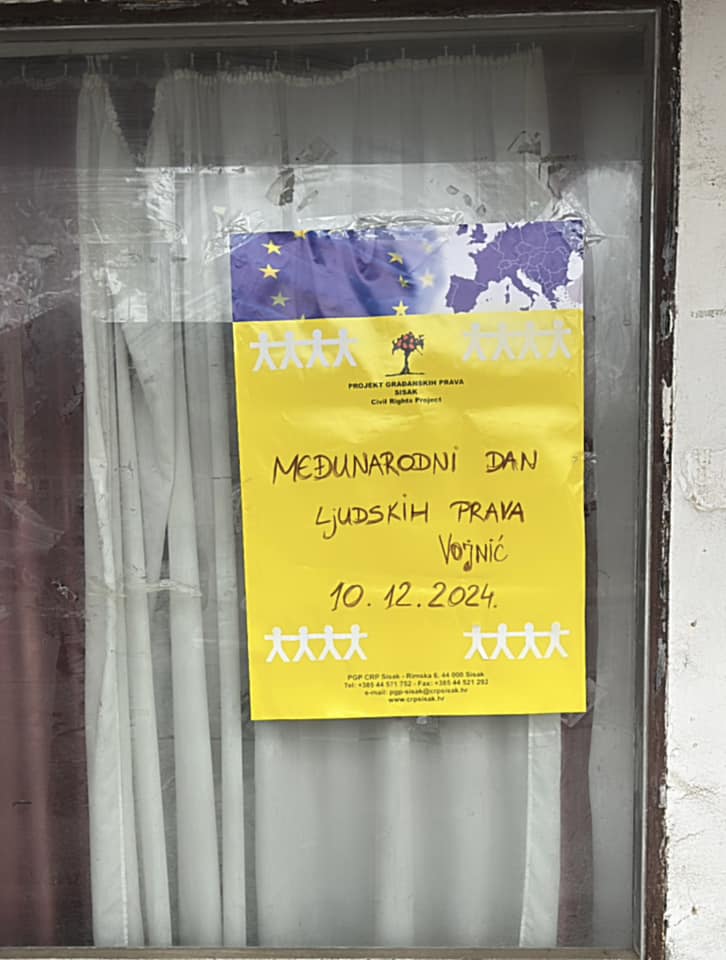 PROJEKT GRAĐANSKIH PRAVA
SISAK
Civil Rights Project
MEĐUNARODNI DAN
LjUDSKIH PRAVA
VOJNIĆ
10. 12. 2024.
PGP CRP Sisak - Rimska 6, 44 000 Sisak
Tel: +385 44 571 752 - Fax: +385 44 521 292
e-mail: pgp-sisak@crpsisak.hr
www.crpsisak.hr